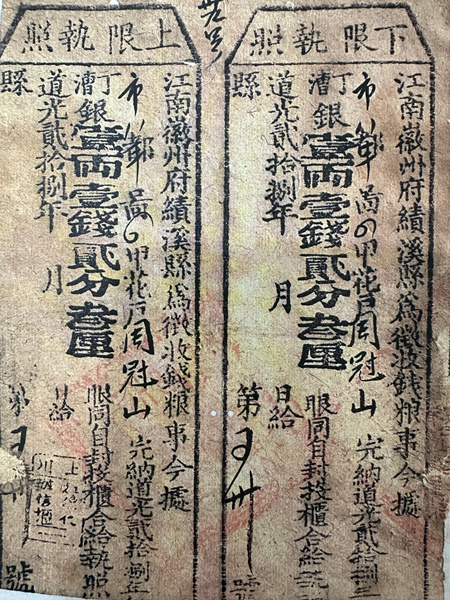 下限執照
江南徽州府績溪縣為徵收錢粮事今據
市鄉啚甲花戶周冠山完納道光貳拾捌
丁漕銀壹兩壹錢貳分叁厘眼同自封投櫃合給
道光貳拾捌年 月 日給 第 號
縣
上限執照
江南徽州府績溪縣為徵收錢粮事今據
市鄉啚甲花戶周冠山完納道光貳拾捌年
丁漕銀壹兩壹錢貳分叁厘眼同自封投櫃合給執照
道光貳拾捌年 月 日給 第 號
縣